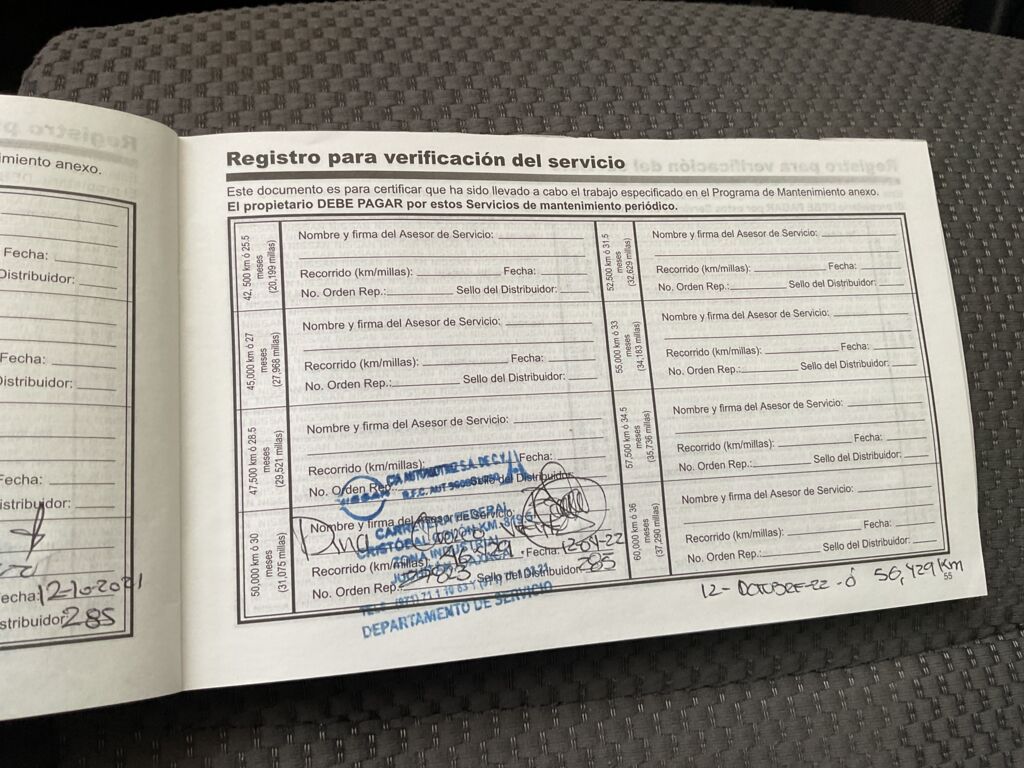 miento anexo.
Fecha:
Distribuidor:
Fecha:
Distribuidor:
Fecha:
istribuidor:
echa: 12-10-2021
stribuidor: 285
Registro para verificación del servicio
Este documento es para certificar que ha sido llevado a cabo el trabajo especificado en el Programa de Mantenimiento anexo.
El propietario DEBE PAGAR por estos Servicios de mantenimiento periódico.
42, 500 km ó 25.5
meses
(20,199 millas)
Nombre y firma del Asesor de Servicio:
Recorrido (km/millas): Fecha:
No. Orden Rep.: Sello del Distribuidor:
45,000 km ó 27
meses
(27,968 millas)
Nombre y firma del Asesor de Servicio:
Recorrido (km/millas): Fecha:
No. Orden Rep.: Sello del Distribuidor:
47,500 km ó 28.5
meses
(29,521 millas)
Nombre y firma del Asesor de Servicio:
Recorrido (km/millas): Fecha:
No. Orden Rep.: Sello del Distribuidor:
50,000 km ó 30
meses
(31,075 millas)
Nombre y firma del Asesor de Servicio:
Recorrido (km/millas): Fecha: 12-04-22
No. Orden Rep.: Sello del Distribuidor: 285
AUTOMOTRIZ S.A. DE C.V.
R.F.C. AUT
CARRETERA FEDERAL
CRISTÓBAL COLÓN KM.
ZONA INDUSTRIAL
DEPARTAMENTO DE SERVICIO
52,500 km ó 31.5
meses
(32,629 millas)
Nombre y firma del Asesor de Servicio:
Recorrido (km/millas): Fecha:
No. Orden Rep.: Sello del Distribuidor:
55,000 km ó 33
meses
(34,183 millas)
Nombre y firma del Asesor de Servicio:
Recorrido (km/millas): Fecha:
No. Orden Rep.: Sello del Distribuidor:
57,500 km ó 34.5
meses
(35,736 millas)
Nombre y firma del Asesor de Servicio:
Recorrido (km/millas): Fecha:
No. Orden Rep.: Sello del Distribuidor:
60,000 km ó 36
meses
(37,290 millas)
Nombre y firma del Asesor de Servicio:
Recorrido (km/millas): Fecha:
No. Orden Rep.: Sello del Distribuidor:
12- OCTUBRE-22 - ó 56,429 Km
55